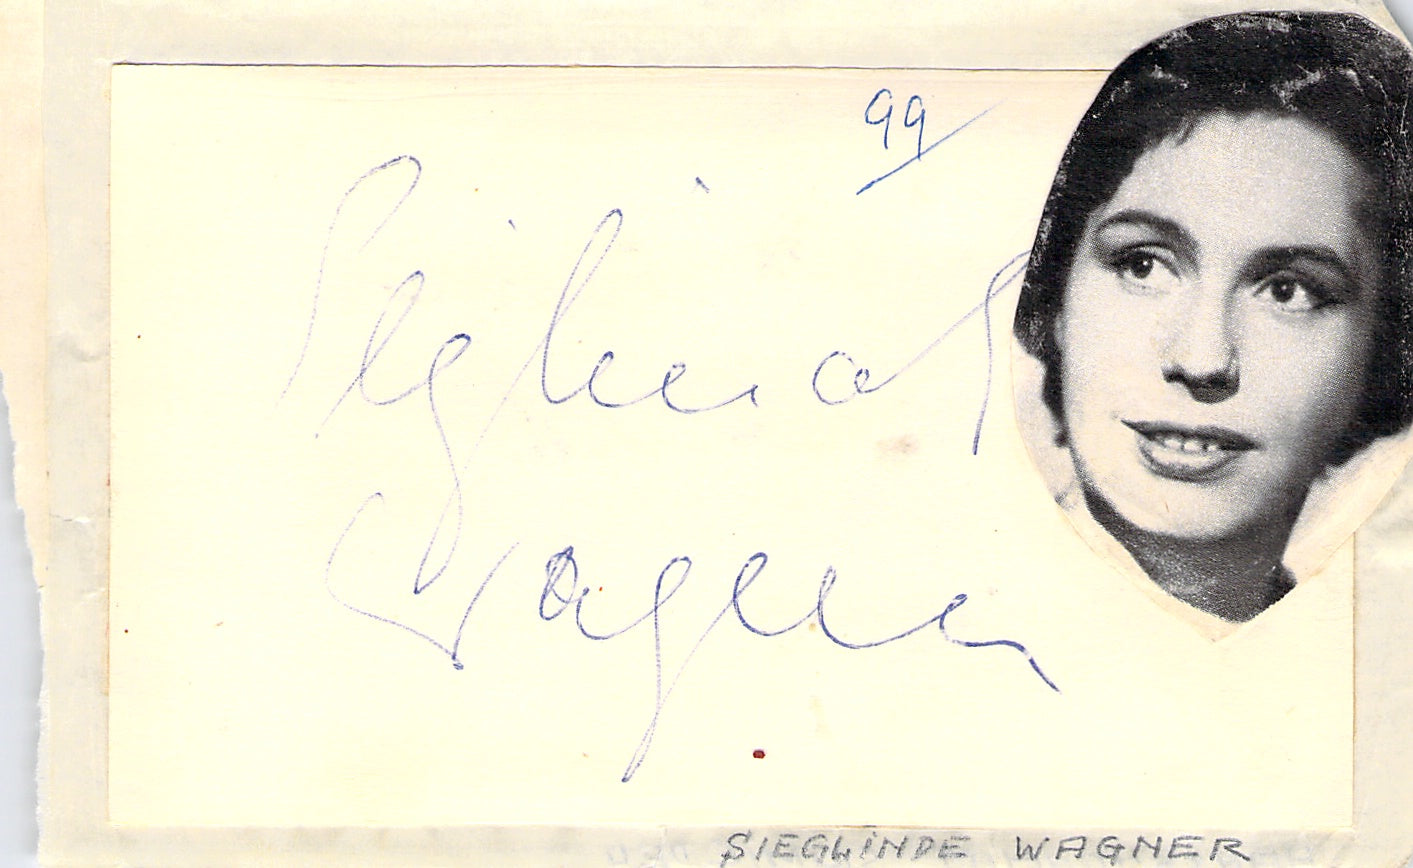 99
Sieglinde
Wagner
SIEGLINDE WAGNER